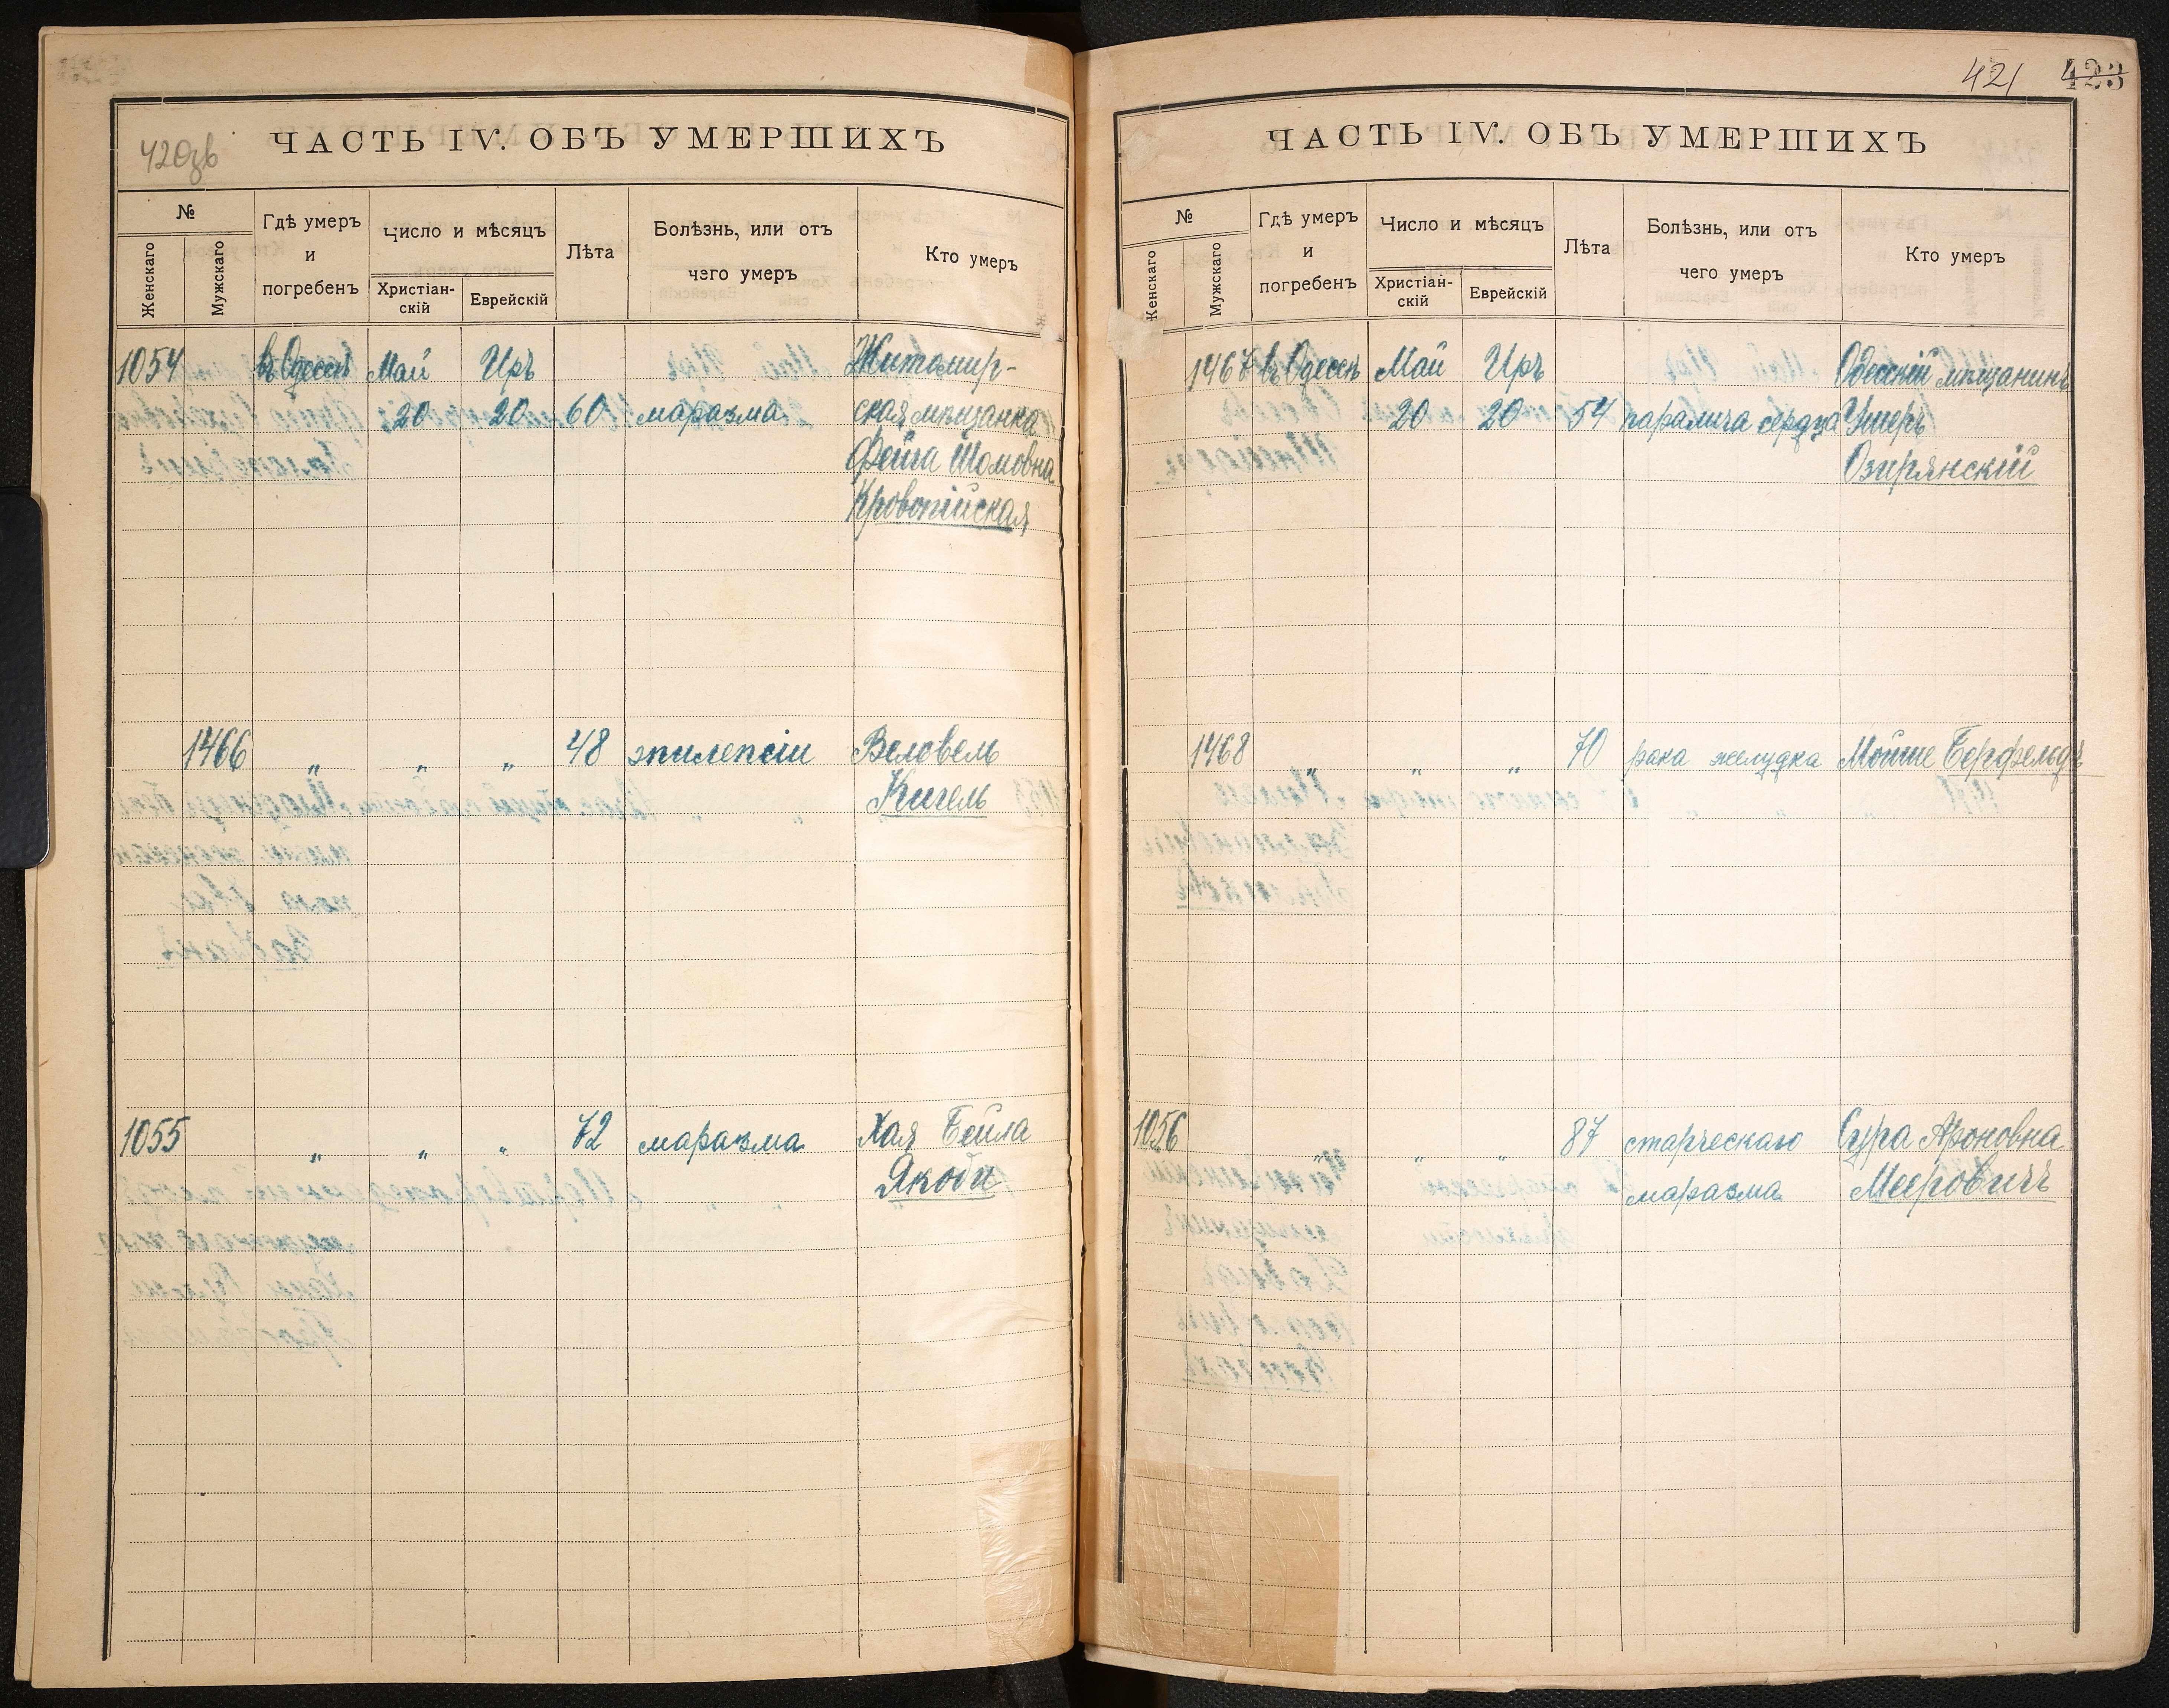 420зв
ЧАСТЬ IV. ОБЪ УМЕРШИХЪ
№
Женскаго
Мужскаго
Гдѣ умеръ
и
погребенъ
Число и мѣсяцъ
Христіан-
скій
Еврейскій
Лѣта
Болѣзнь, или отъ
чего умеръ
Кто умеръ
1054 въ Одессѣ Май Иръ Житомир-
20 20 60 маразма ская мѣщанка
Фейга Шомовна
Кровопійская
1466 „ „ „ 48 эпилепсіи Веловель
Кигель
1055 „ „ „ 72 маразма Хая Бейла
Якоби
421 423
ЧАСТЬ IV. ОБЪ УМЕРШИХЪ
№
Женскаго
Мужскаго
Гдѣ умеръ
и
погребенъ
Число и мѣсяцъ
Христіан-
скій
Еврейскій
Лѣта
Болѣзнь, или отъ
чего умеръ
Кто умеръ
1467 въ Одессѣ Май Иръ Одесскій мѣщанинъ
20 20 54 паралича сердца Ушеръ
Озирянскій
1468 „ „ „ 70 рака желудка Мойше Берфельдъ
1056 „ „ „ 87 старческаго Сура Ароновна
маразма Мееровичъ